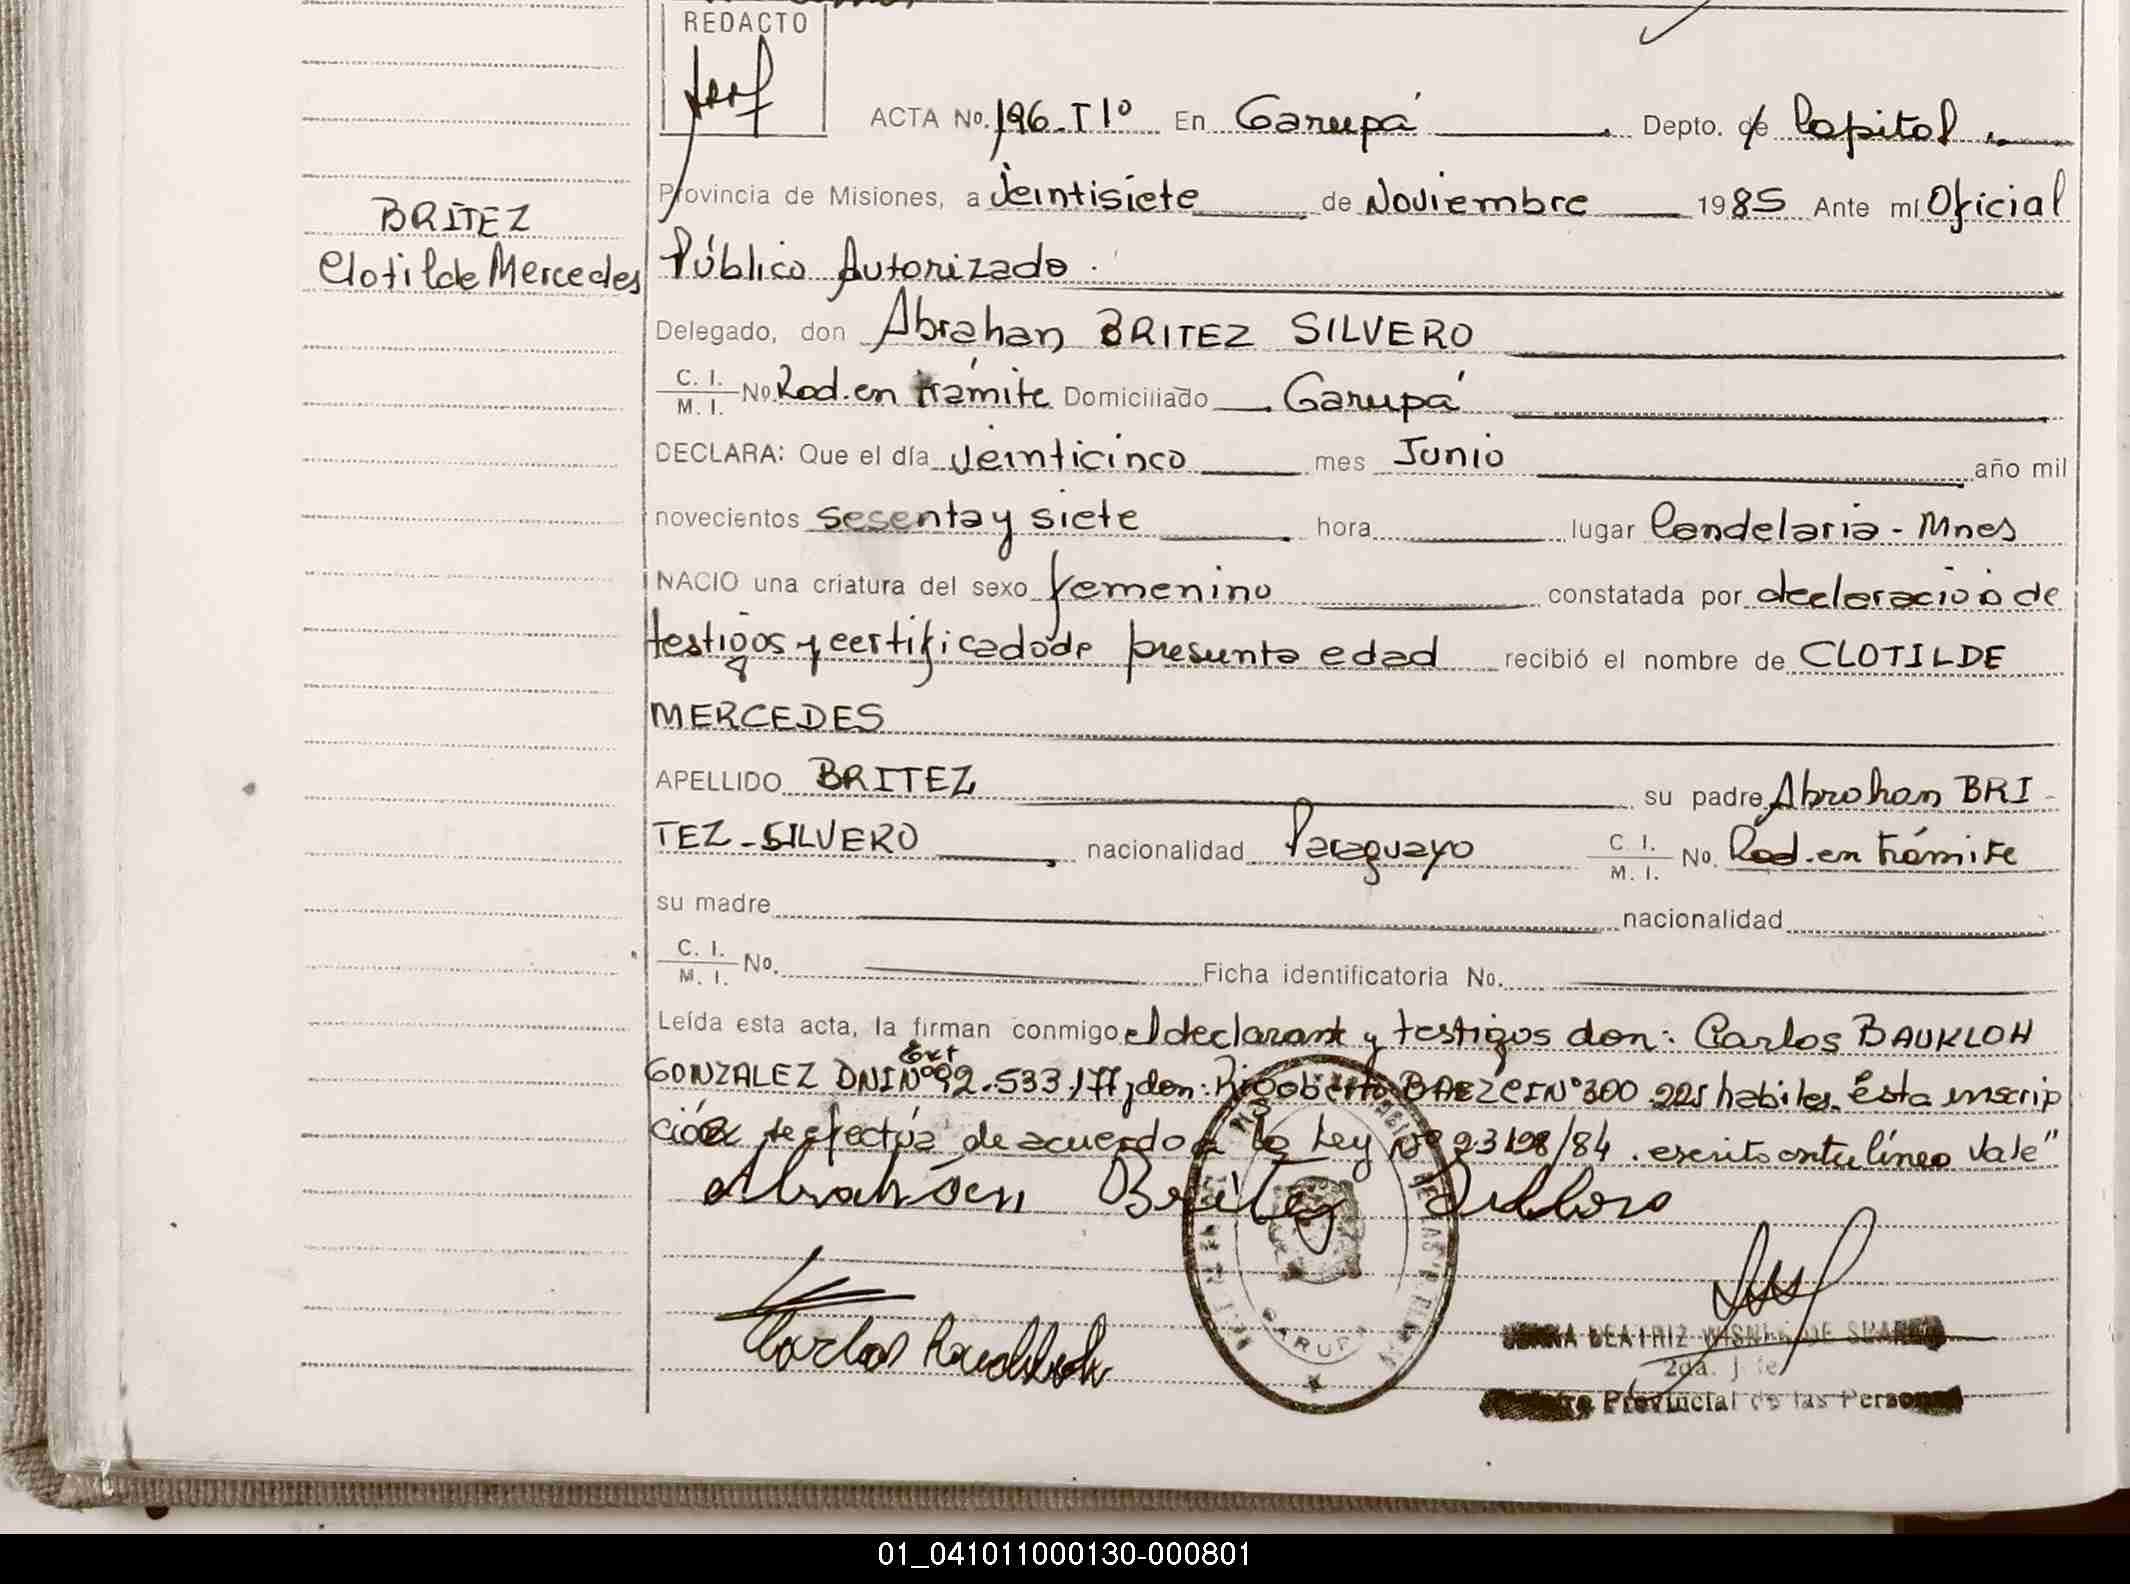 REDACTO
ACTA No. 196-T1º En Garupá Depto. de Capital
Provincia de Misiones, a Veintisiete de Noviembre 1985 Ante mí Oficial
BRITEZ
Clotilde Mercedes
Público Autorizado.
Delegado, don Abrahan BRITEZ SILVERO
C. I. / M. I. No. Rad. en trámite Domiciliado Garupá
DECLARA: Que el día veinticinco mes Junio año mil
novecientos sesenta y siete hora lugar Candelaria - Mnes
NACIO una criatura del sexo femenino constatada por declaración de
testigos y certificado de presunta edad recibió el nombre de CLOTILDE
MERCEDES
APELLIDO BRITEZ su padre Abrahan BRI-
TEZ-SILVERO nacionalidad Paraguayo C. I. / M. I. No. Rad. en trámite
su madre nacionalidad
C. I. / M. I. No. Ficha identificatoria No.
Leída esta acta, la firman conmigo el declarant y testigos don: Carlos BAUKLOH
Ext
GONZALEZ DNI Nº 92.533.177 y don: Rigoberto BAEZ CI Nº 300.225 habiles. Esta inscrip
ción se efectúa de acuerdo a la Ley Nº 23198/84. escrito entre líneo Vale"
Abrahán Britez Silvero
Carlos Baukloh
GARUPA
BEATRIZ WISNER DE SUAREZ
2da. Jefe
Provincial de las Personas
01_041011000130-000801